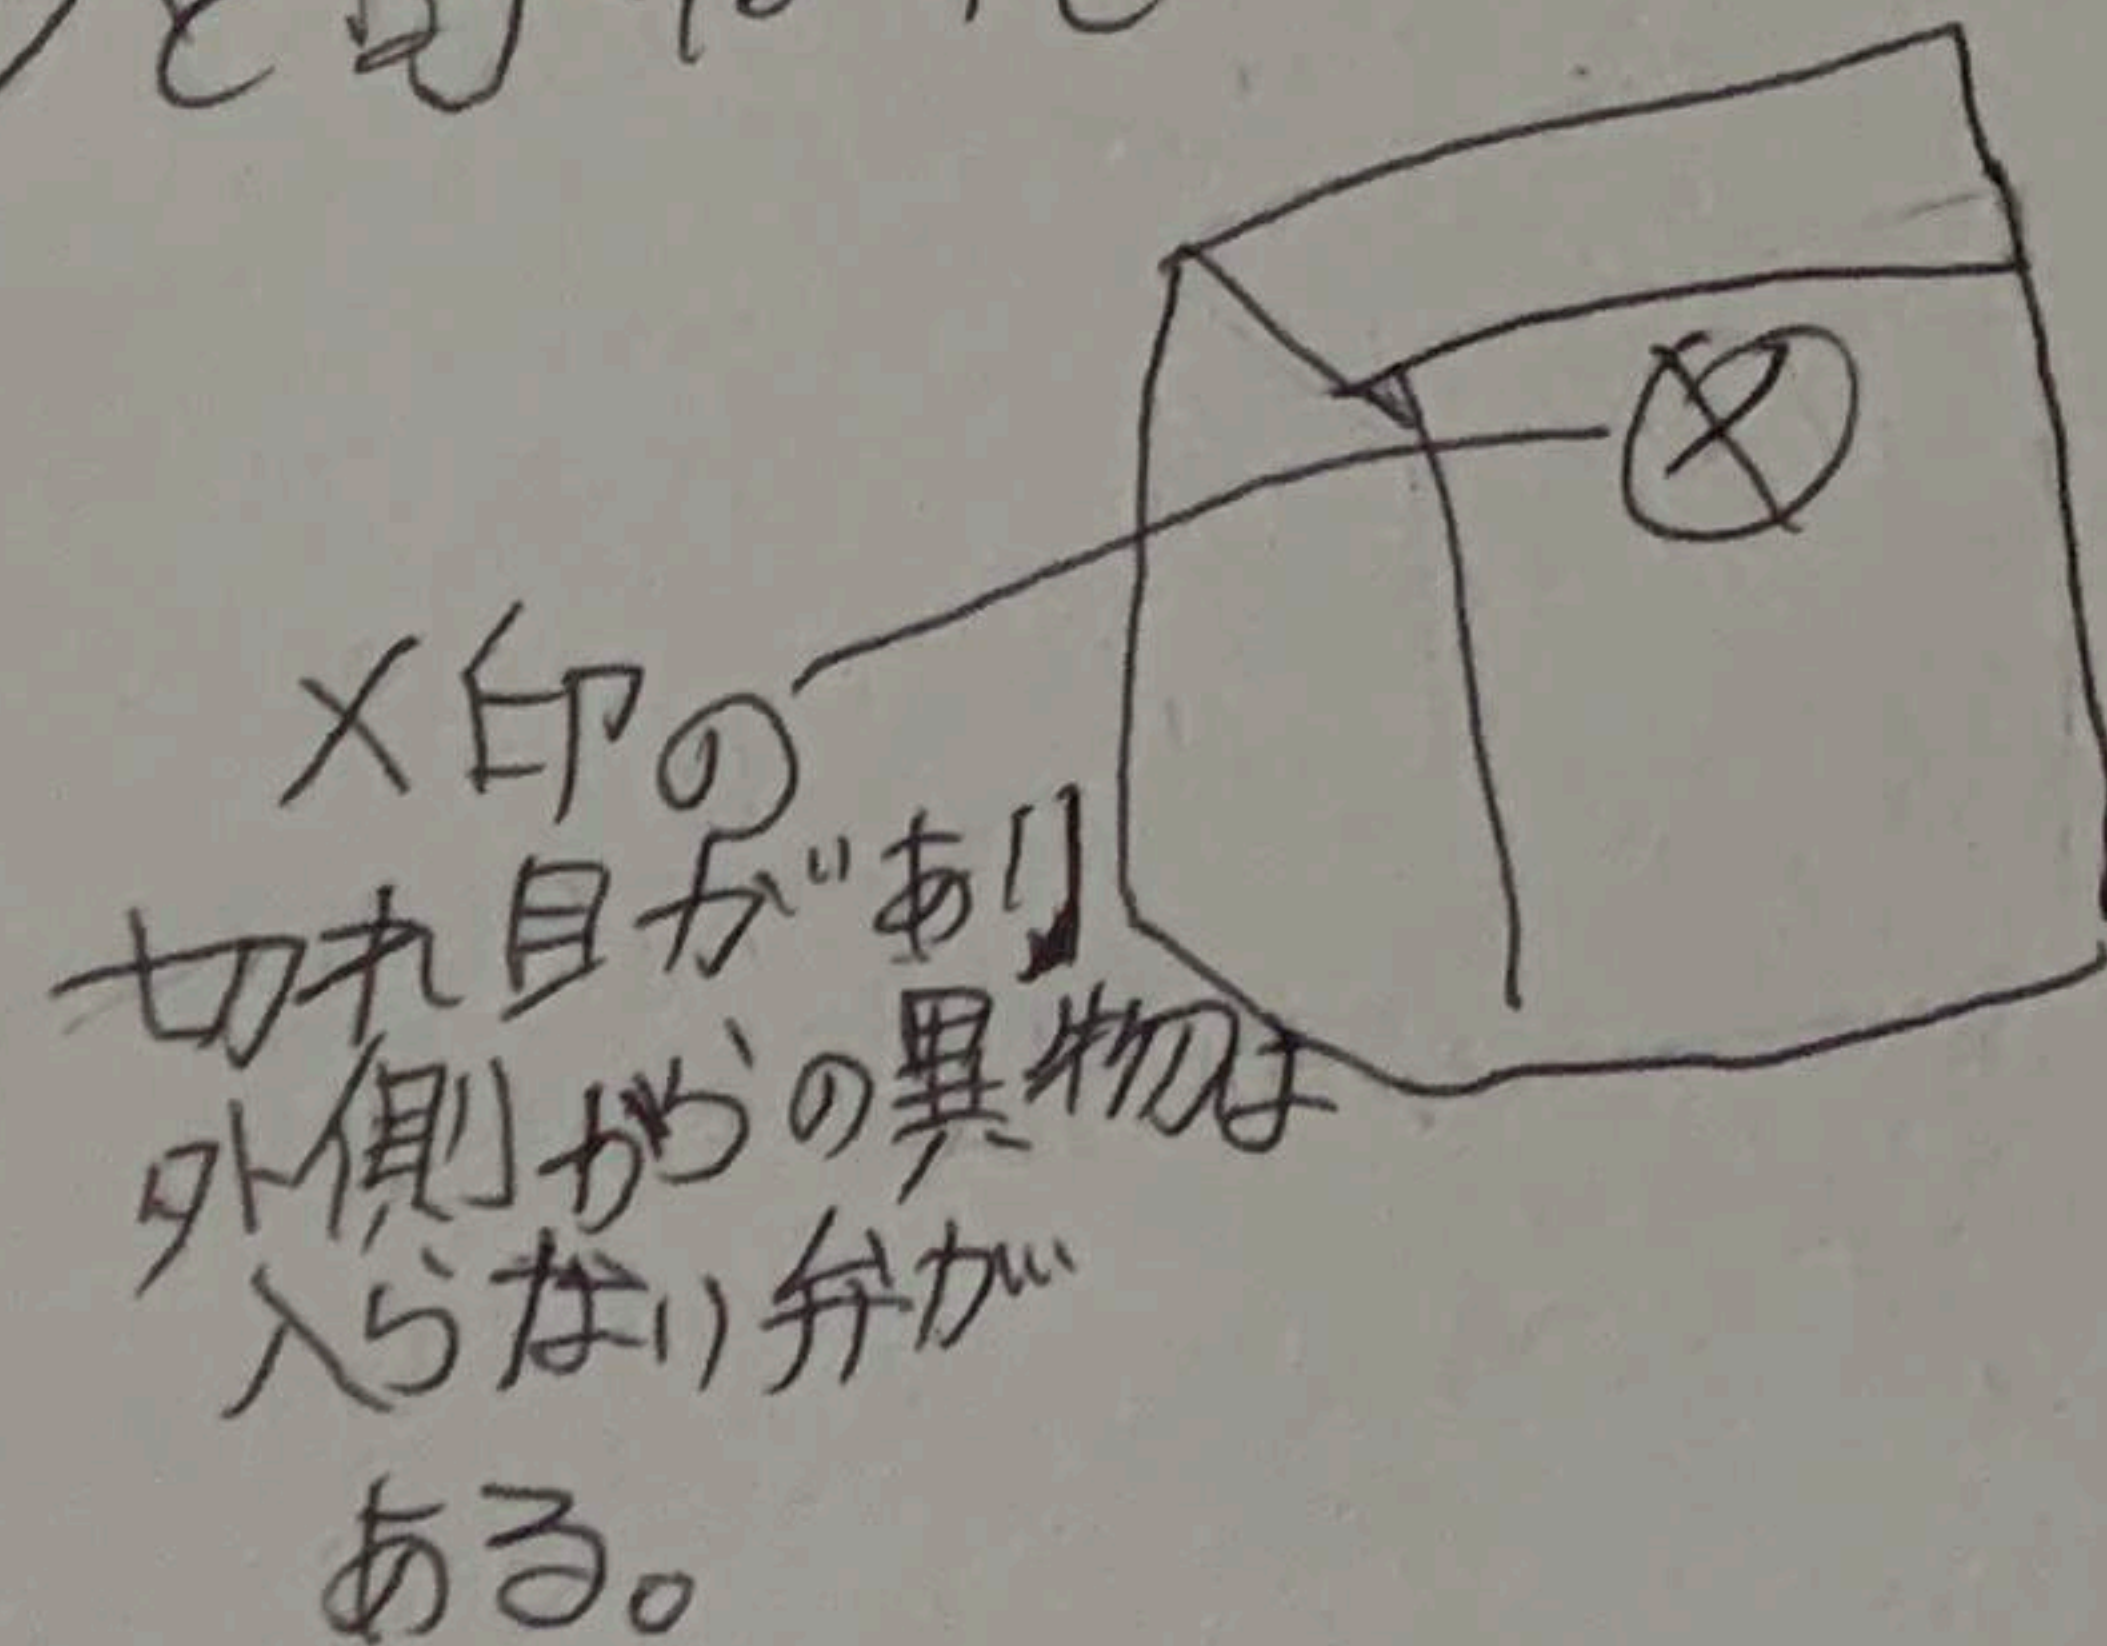 ×印の
切れ目があり
外側からの異物は
入らない弁が
ある。